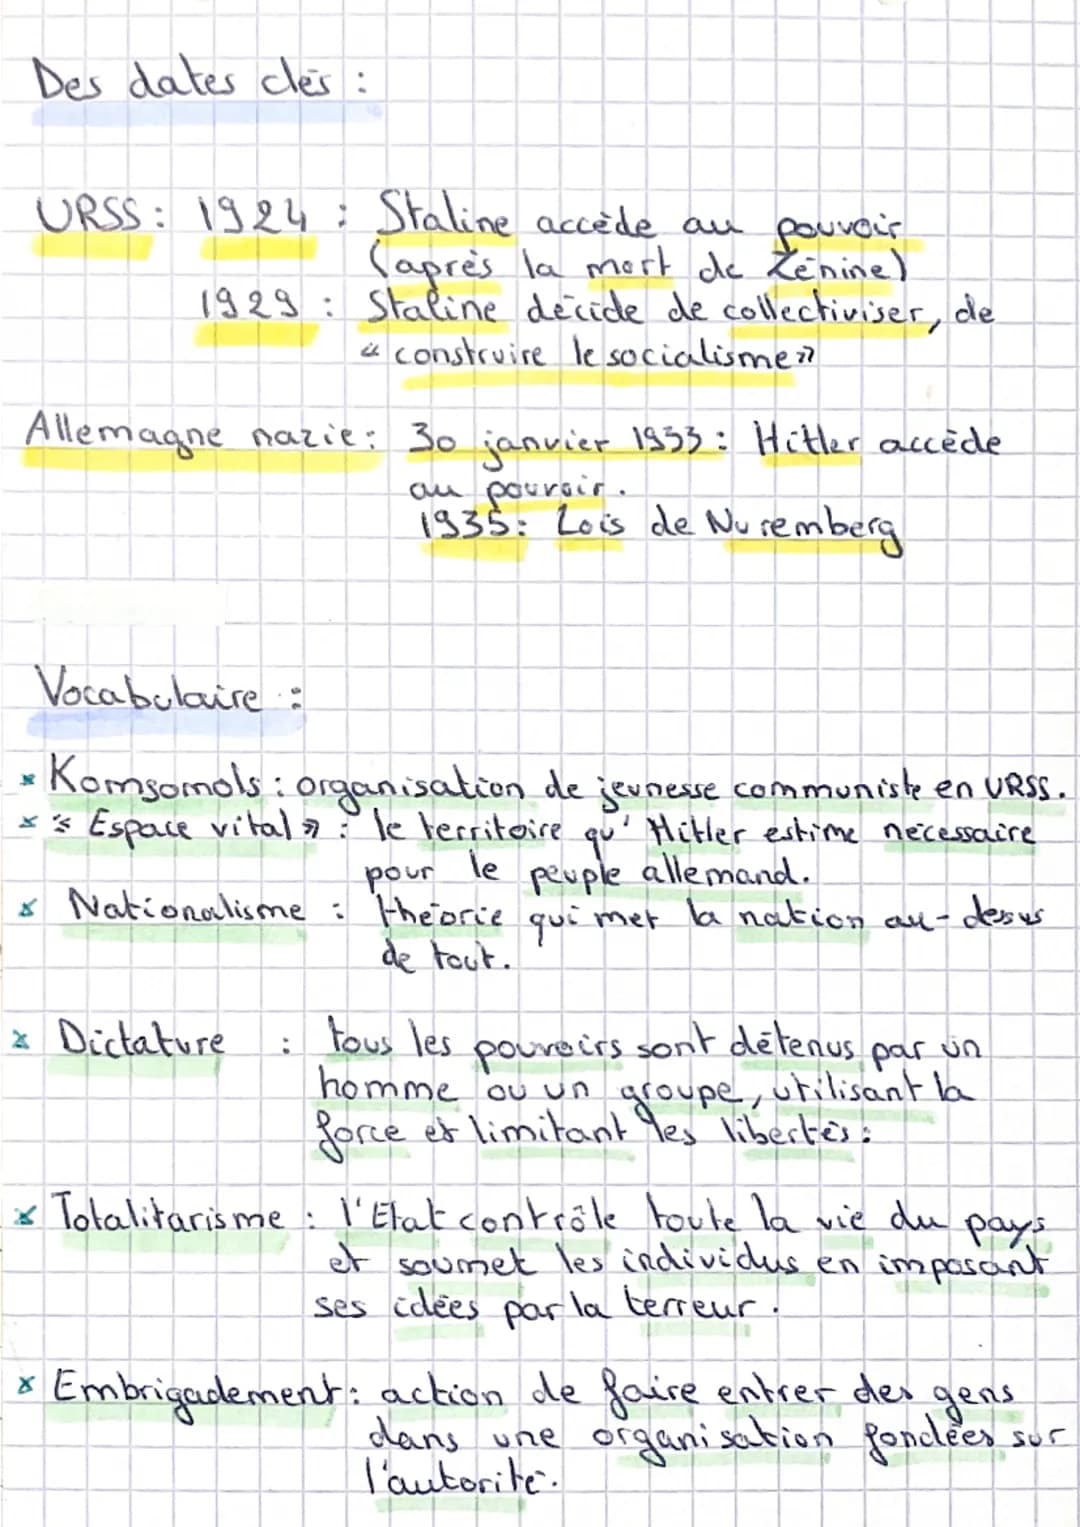 Des dates clés :
URSS : 1924 : Staline accède au pouvoir
(après la mort de Lénine)
1929 : Staline décide de collectiviser, de
« construire le socialisme »
Allemagne nazie : 30 janvier 1933 : Hitler accède
au pouvoir.
1935 : Lois de Nuremberg
Vocabulaire :
x Komsomols : organisation de jeunesse communiste en URSS.
x « Espace vital » : le territoire qu' Hitler estime nécessaire
pour le peuple allemand.
x Nationalisme : théorie qui met la nation au-desus
de tout.
x Dictature : tous les pouvoirs sont détenus par un
homme ou un groupe, utilisant la
force et limitant les libertés :
x Totalitarisme : l'Etat contrôle toute la vie du pays
et soumet les individus en imposant
ses idées par la terreur.
x Embrigadement : action de faire entrer des gens
dans une organisation fondées sur
l'autorité.